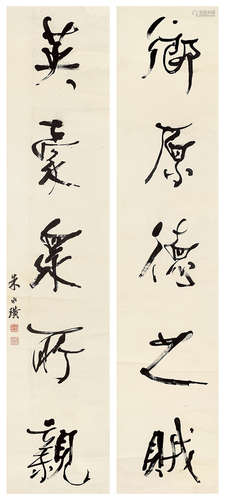 鄉原德之賊
英豪眾所親
朱